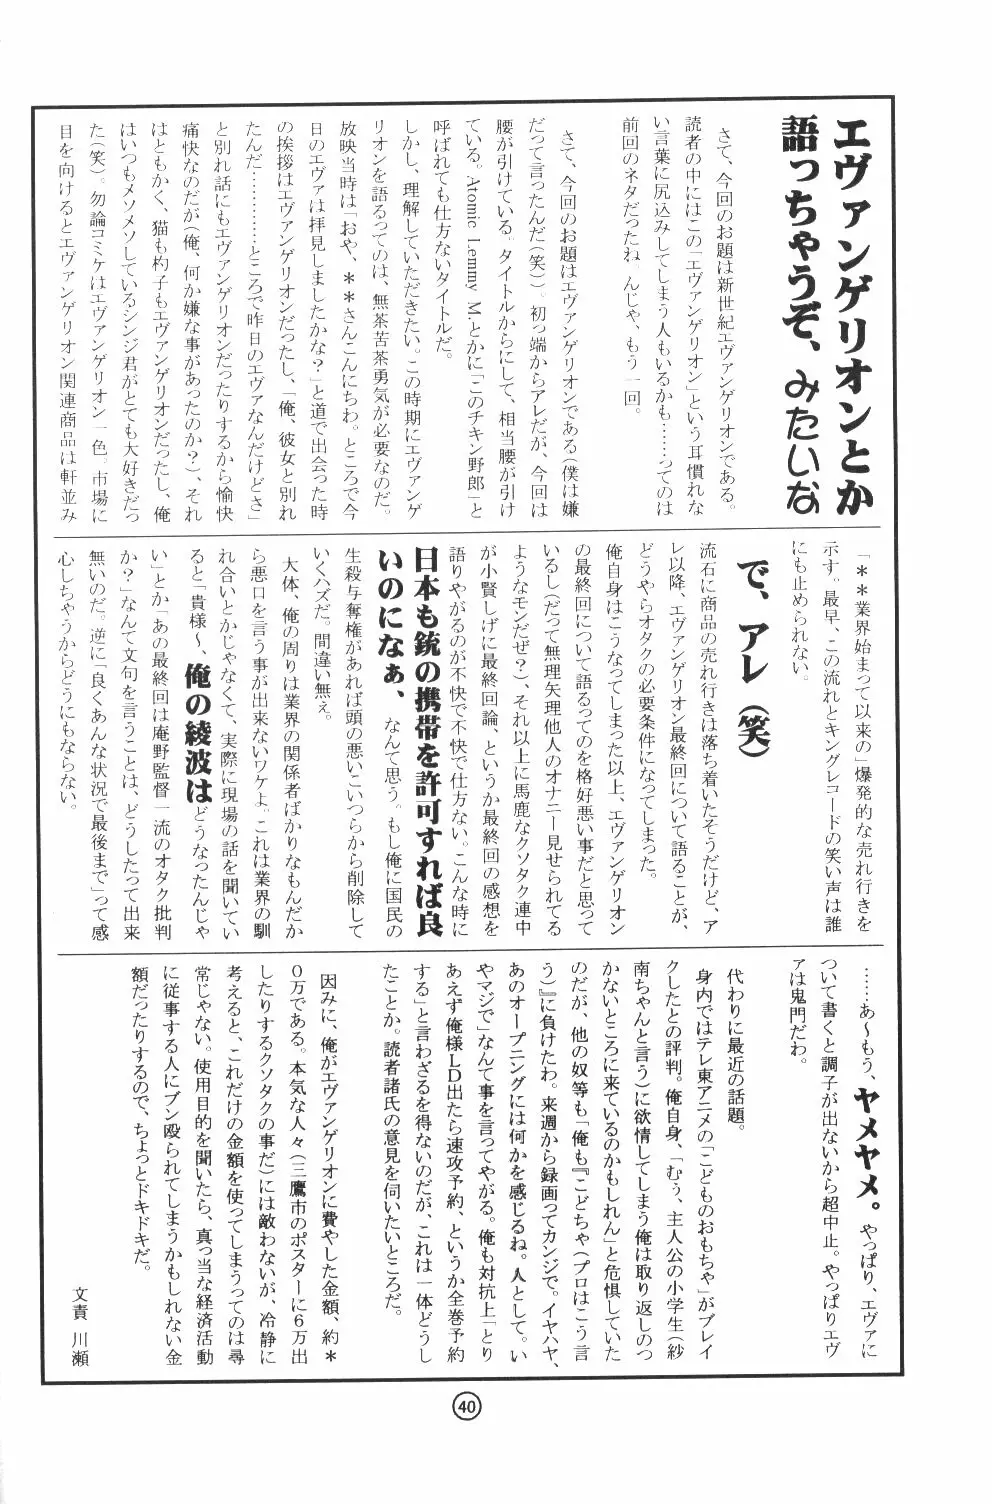 エヴァンゲリオンとか
語っちゃうぞ、みたいな
さて、今回のお題は新世紀エヴァンゲリオンである。
読者の中にはこの「エヴァンゲリオン」という耳慣れな
い言葉に尻込みしてしまう人もいるかも……ってのは
前回のネタだったね。んじゃ、もう一回。
さて、今回のお題はエヴァンゲリオンである(僕は嫌
だって言ったんだ(笑))。初っ端からアレだが、今回は
腰が引けている。タイトルからにして、相当腰が引け
ている。Atomic Lemmy M.とかに「このチキン野郎」と
呼ばれても仕方ないタイトルだ。
しかし、理解していただきたい。この時期にエヴァンゲ
リオンを語るってのは、無茶苦茶勇気が必要なのだ。
放映当時は「おや、＊＊さんこんにちわ。ところで今
日のエヴァは拝見しましたかな?」と道で出会った時
の挨拶はエヴァンゲリオンだったし、「俺、彼女と別れ
たんだ…………ところで昨日のエヴァなんだけどさ」
と別れ話にもエヴァンゲリオンだったりするから愉快
痛快なのだが(俺、何か嫌な事があったのか?)、それ
はともかく、猫も杓子もエヴァンゲリオンだったし、俺
はいつもメソメソしているシンジ君がとても大好きだっ
た(笑)。勿論コミケはエヴァンゲリオン一色。市場に
目を向けるとエヴァンゲリオン関連商品は軒並み
「＊＊業界始まって以来の」爆発的な売れ行きを
示す。最早、この流れとキングレコードの笑い声は誰
にも止められない。
で、アレ(笑)
流石に商品の売れ行きは落ち着いたそうだけど、ア
レ以降、エヴァンゲリオン最終回について語ることが、
どうやらオタクの必要条件になってしまった。
俺自身はこうなってしまった以上、エヴァンゲリオン
の最終回について語るってのを格好悪い事だと思って
いるし(だって無理矢理他人のオナニー見せられてる
ようなモンだぜ?)、それ以上に馬鹿なクソタク連中
が小賢しげに最終回論、というか最終回の感想を
語りやがるのが不快で不快で仕方ない。こんな時に
日本も銃の携帯を許可すれば良
いのになぁ、なんて思う。もし俺に国民の
生殺与奪権があれば頭の悪いこいつらから削除して
いくハズだ。間違い無ぇ。
大体、俺の周りは業界の関係者ばかりなもんだか
ら悪口を言う事が出来ないワケよ。これは業界の馴
れ合いとかじゃなくて、実際に現場の話を聞いてい
ると「貴様〜、俺の綾波はどうなったんじゃ
い」とか「あの最終回は庵野監督一流のオタク批判
か?」なんて文句を言うことは、どうしたって出来
無いのだ。逆に「良くあんな状況で最後まで」って感
心しちゃうからどうにもならない。
……あ〜もう、ヤメヤメ。やっぱり、エヴァに
ついて書くと調子が出ないから超中止。やっぱりエヴ
ァは鬼門だわ。
代わりに最近の話題。
身内ではテレ東アニメの「こどものおもちゃ」がブレイ
クしたとの評判。俺自身、「むう、主人公の小学生(紗
南ちゃんと言う)に欲情してしまう俺は取り返しのつ
かないところに来ているのかもしれん」と危惧していた
のだが、他の奴等も「俺も『こどちゃ(プロはこう言
う)』に負けたわ。来週から録画ってカンジで。イヤハヤ、
あのオープニングには何かを感じるね。人として。い
やマジで」なんて事を言ってやがる。俺も対抗上「とり
あえず俺様LD出たら速攻予約、というか全巻予約
する」と言わざるを得ないのだが、これは一体どうし
たことか。読者諸氏の意見を伺いたいところだ。
因みに、俺がエヴァンゲリオンに費やした金額、約＊
0万である。本気な人々(三鷹市のポスターに6万出
したりするクソタクの事だ)には敵わないが、冷静に
考えると、これだけの金額を使ってしまうってのは尋
常じゃない。使用目的を聞いたら、真っ当な経済活動
に従事する人にブン殴られてしまうかもしれない金
額だったりするので、ちょっとドキドキだ。
文責 川瀬
40